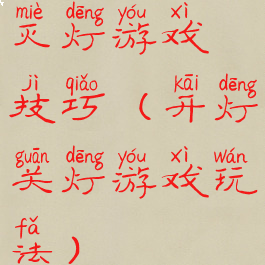 miè dēng yóu xì
灭灯游戏
jì qiǎo kāi dēng
技巧（开灯
guān dēng yóu xì wán
关灯游戏玩
fǎ
法）